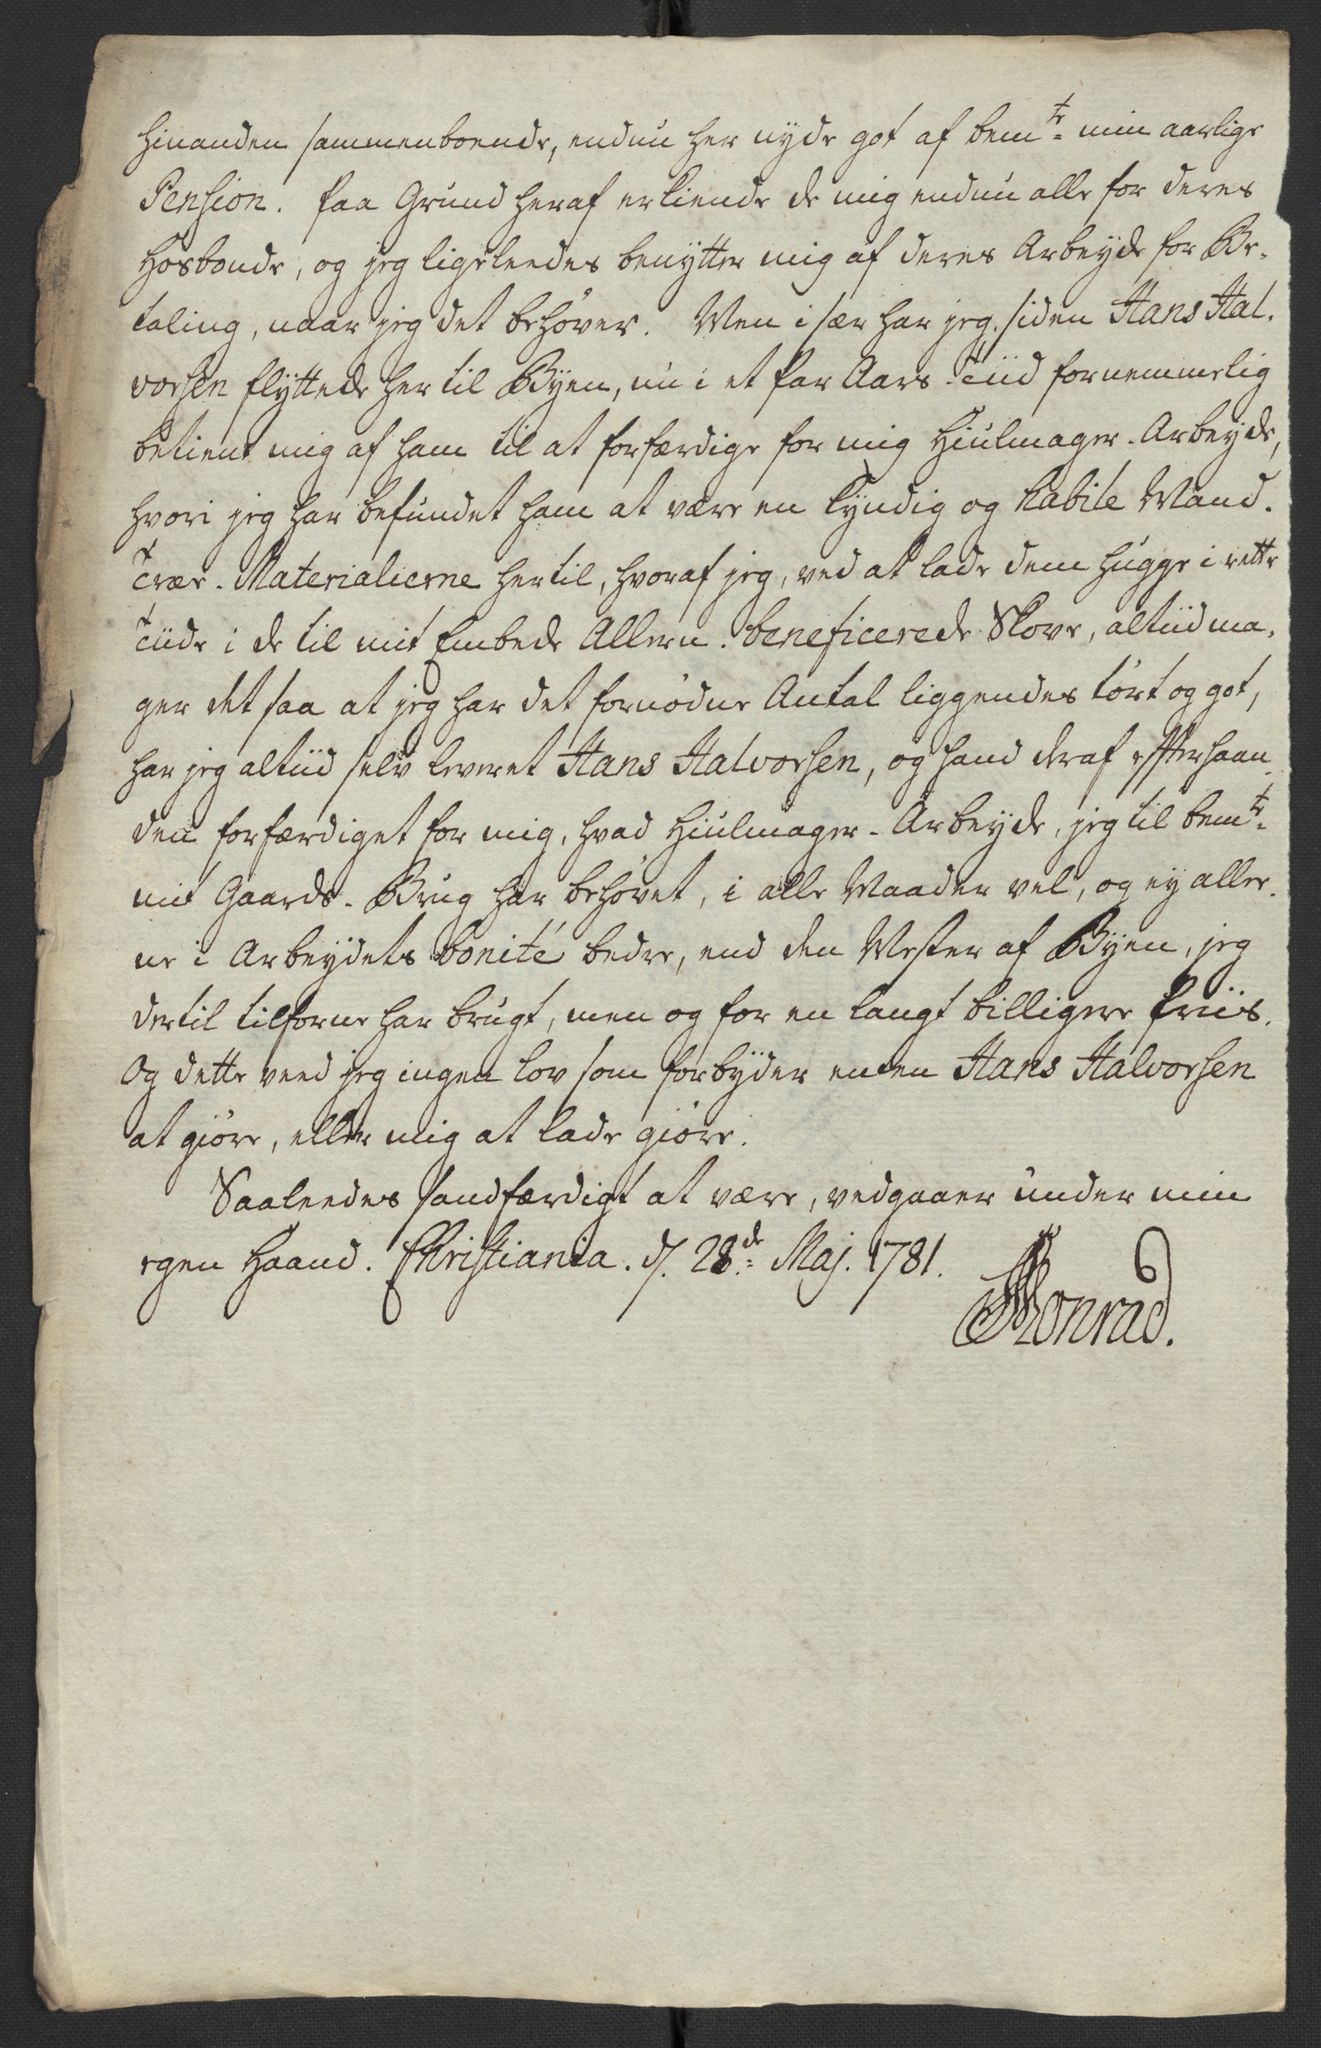 hinanden sammenboende, endnu her nyde got af bemte min aarlige
Pension. Paa Grund heraf erkiende de mig endnu alle for deres
Hosbonde, og jeg ligeleedes benytter mig af deres Arbeyde for Be-
taling, naar jeg det behøver. Men i sær har jeg, siden Hans Hal-
vorsen flyttede her til Byen, nu i et Par Aars Tiid fornemmelig
betient mig af ham til at forfærdige for mig Hiulmager-Arbeyde,
hvori jeg har befundet ham at være en kyndig og habile Mand.
Træe-Materialierne hertil, hvoraf jeg, ved at lade dem hugge i rette
Tiide i de til mit Embede Allern. beneficerede Skove, altiid ma-
ger det saa at jeg har det fornødne Antal liggendes tört og got,
har jeg altiid selv leveret Hans Halvorsen, og hand deraf effterhaan-
den forfærdiget for mig, hvad Hiulmager-Arbeyde, jeg til bemte
mit Gaards-Brug har behøvet, i alle Maader vel, og ey alle-
ne i Arbeydets bonité bedre, end den Mester af Byen, jeg
dertil tilforne har brugt, men og for en langt billigere Priis.
Og dette veed jeg ingen Lov som forbyder enten Hans Halvorsen
at giöre, eller mig at lade giöre.
Saaleedes sandfærdigt at være, vedgaaer under min
egen Haand. Christiania. d. 28de Maj. 1781.
Monrad.